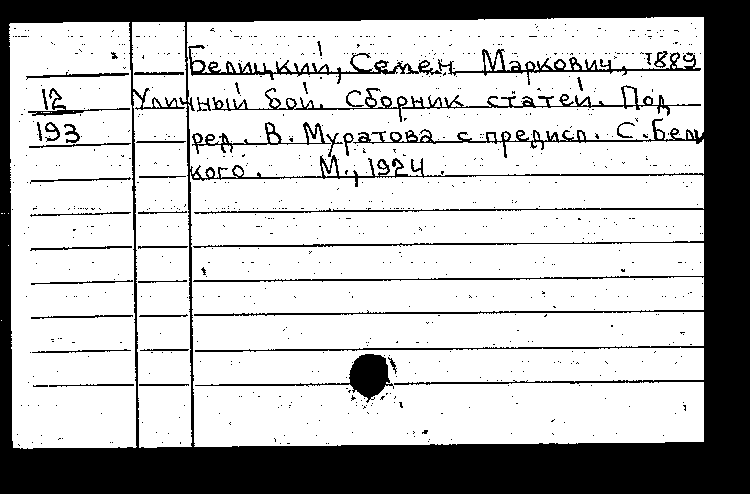 Белицкий, Семен Маркович, 1889
12 Уличный бой. Сборник статей. Под
193 ред. В. Муратова с предисл. С. Бели
кого. М., 1924.